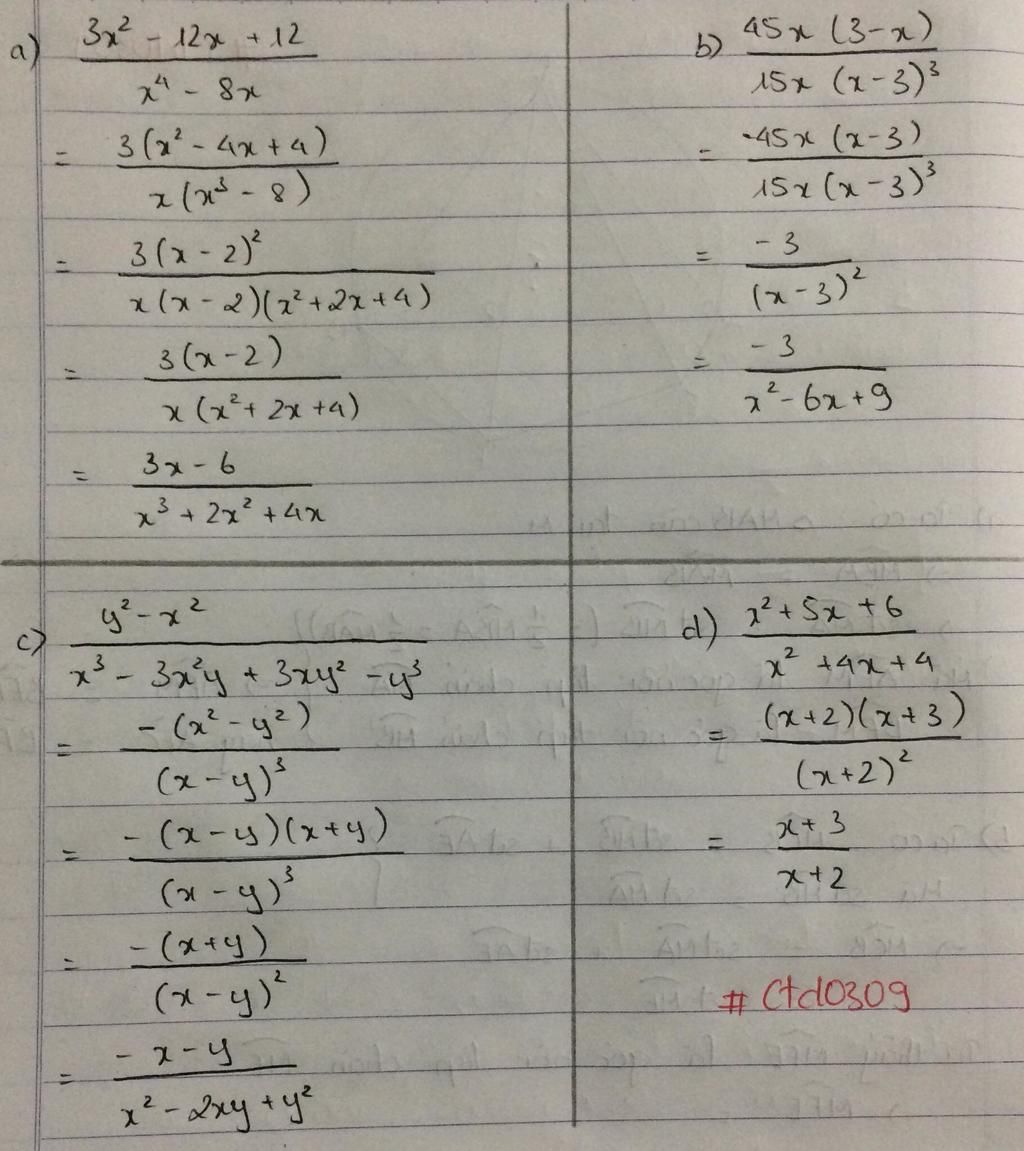 a) (3x² - 12x + 12)/(x⁴ - 8x)
= 3(x² - 4x + 4)/x(x³ - 8)
= 3(x - 2)²/x(x - 2)(x² + 2x + 4)
= 3(x - 2)/x(x² + 2x + 4)
= (3x - 6)/(x³ + 2x² + 4x)
b) 45x (3 - x)/15x (x - 3)³
= -45x (x - 3)/15x (x - 3)³
= -3/(x - 3)²
= -3/(x² - 6x + 9)
c) (y² - x²)/(x³ - 3x²y + 3xy² - y³)
= -(x² - y²)/(x - y)³
= -(x - y)(x + y)/(x - y)³
= -(x + y)/(x - y)²
= (-x - y)/(x² - 2xy + y²)
d) (x² + 5x + 6)/(x² + 4x + 4)
= (x + 2)(x + 3)/(x + 2)²
= (x + 3)/(x + 2)
# Ctd0309